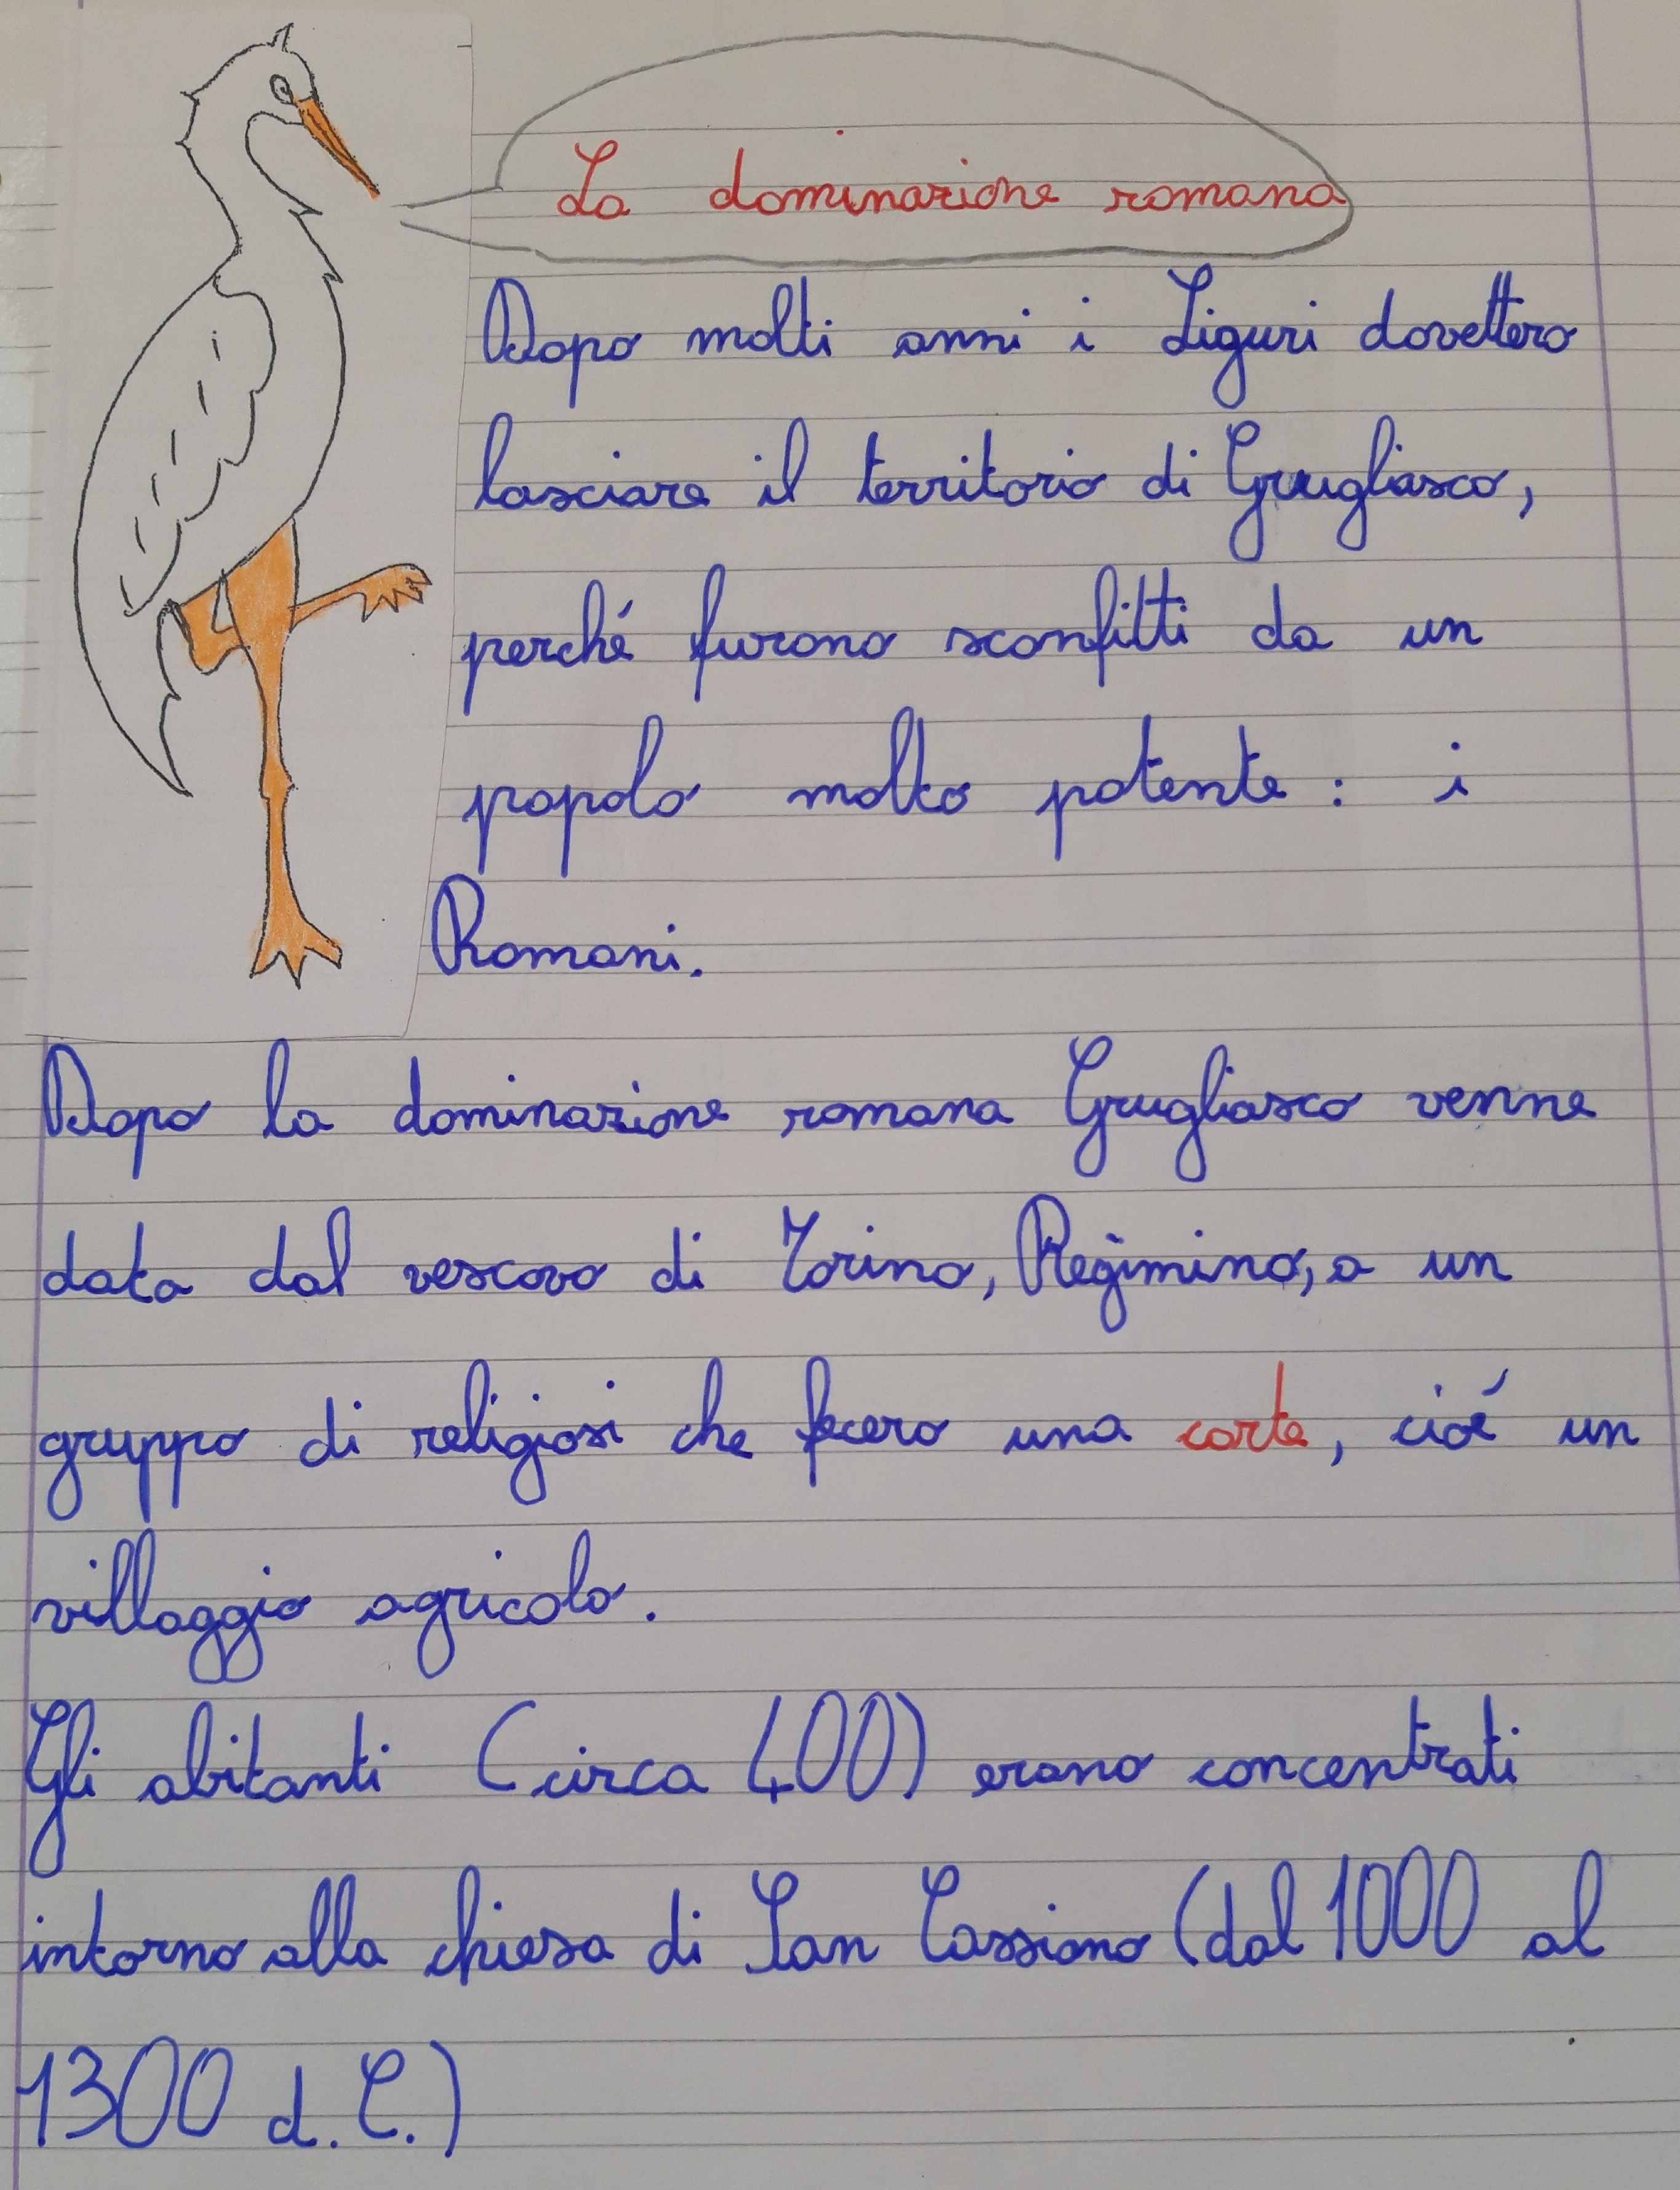 La dominazione romana
Dopo molti anni i Liguri dovettero
lasciare il territorio di Grugliasco,
perché furono sconfitti da un
popolo molto potente: i
Romani.
Dopo la dominazione romana Grugliasco venne
data dal vescovo di Torino, Regimino, a un
gruppo di religiosi che fecero una corte, cioé un
villaggio agricolo.
Gli abitanti (circa 400) erano concentrati
intorno alla chiesa di San Cassiano (dal 1000 al
1300 d.C.)